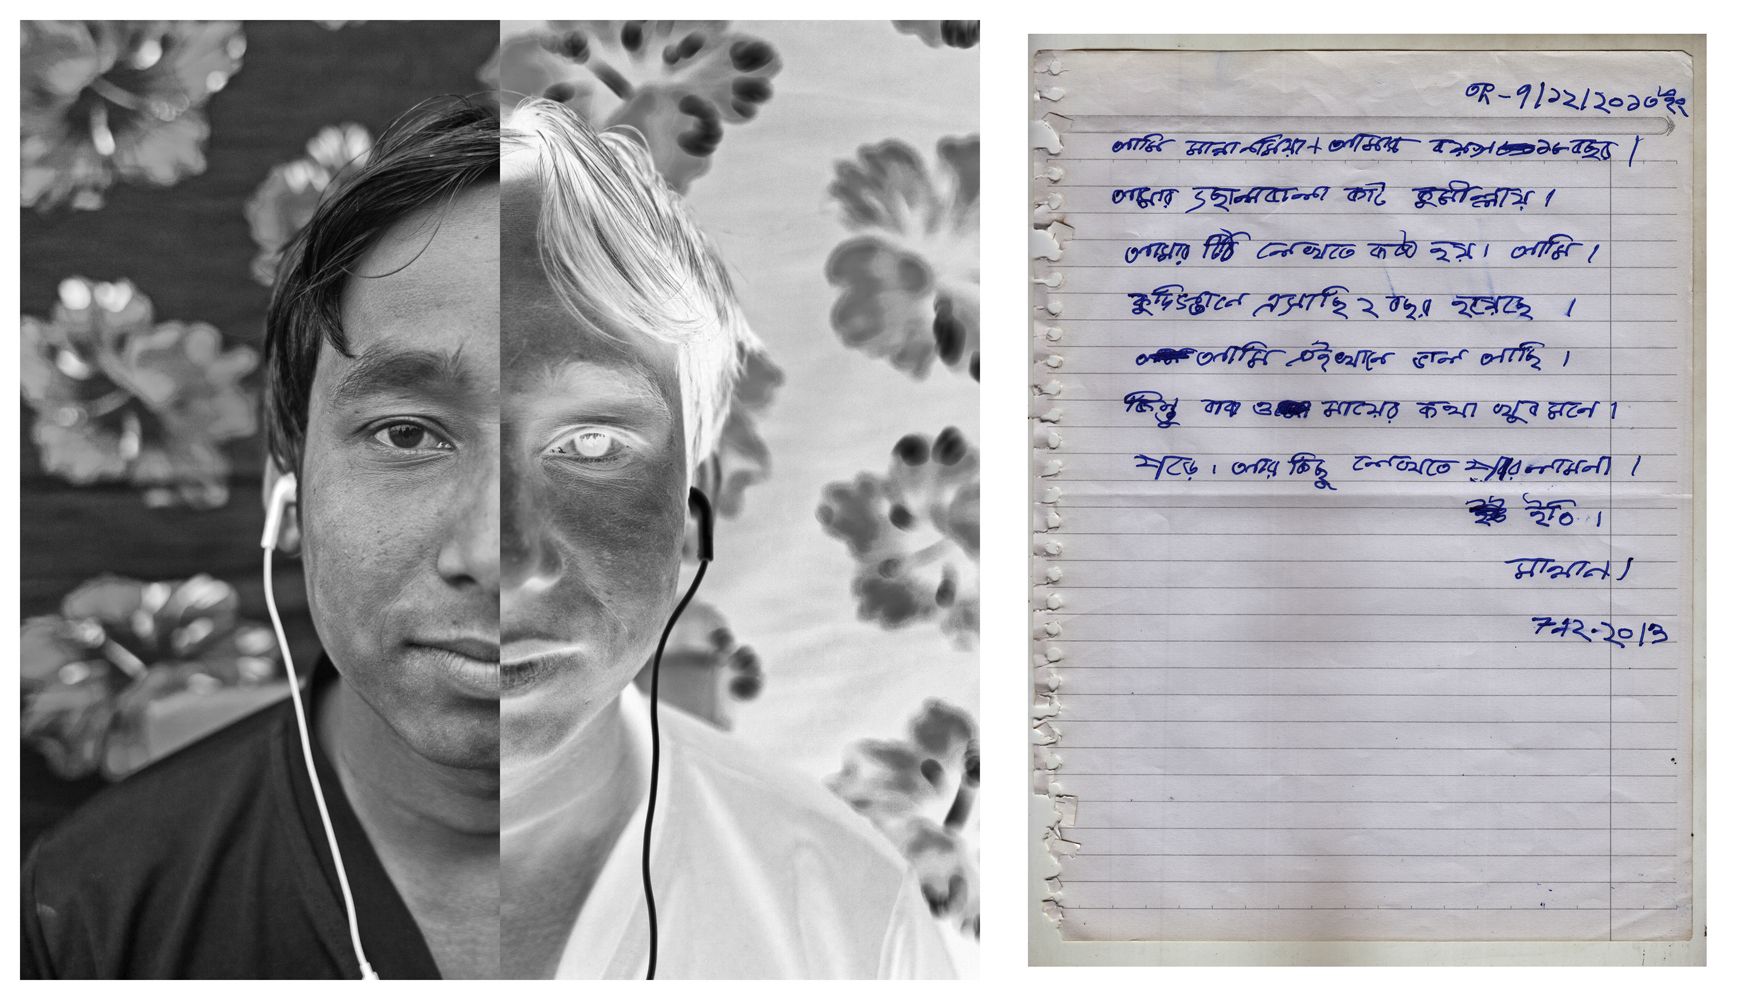 তাং-৭/১২/২০১৩ইং
আমি মান্নান মিয়া। আমার বয়স ১৮ বছর।
আমার ছোলবালা কাটে কুমীল্লায়।
আমার চিঠি লেখতে কষ্ট হয়। আমি।
কুদিস্তানে এসাছি ২ বছর হয়েছে।
আমি এইখানে ভাল আছি।
কিন্তু বাবা ও মায়ের কথা খুব মনে।
পড়ে। আর কিছু লেখতে পারলামনা।
ইতি।
মান্নান।
7-12-2013